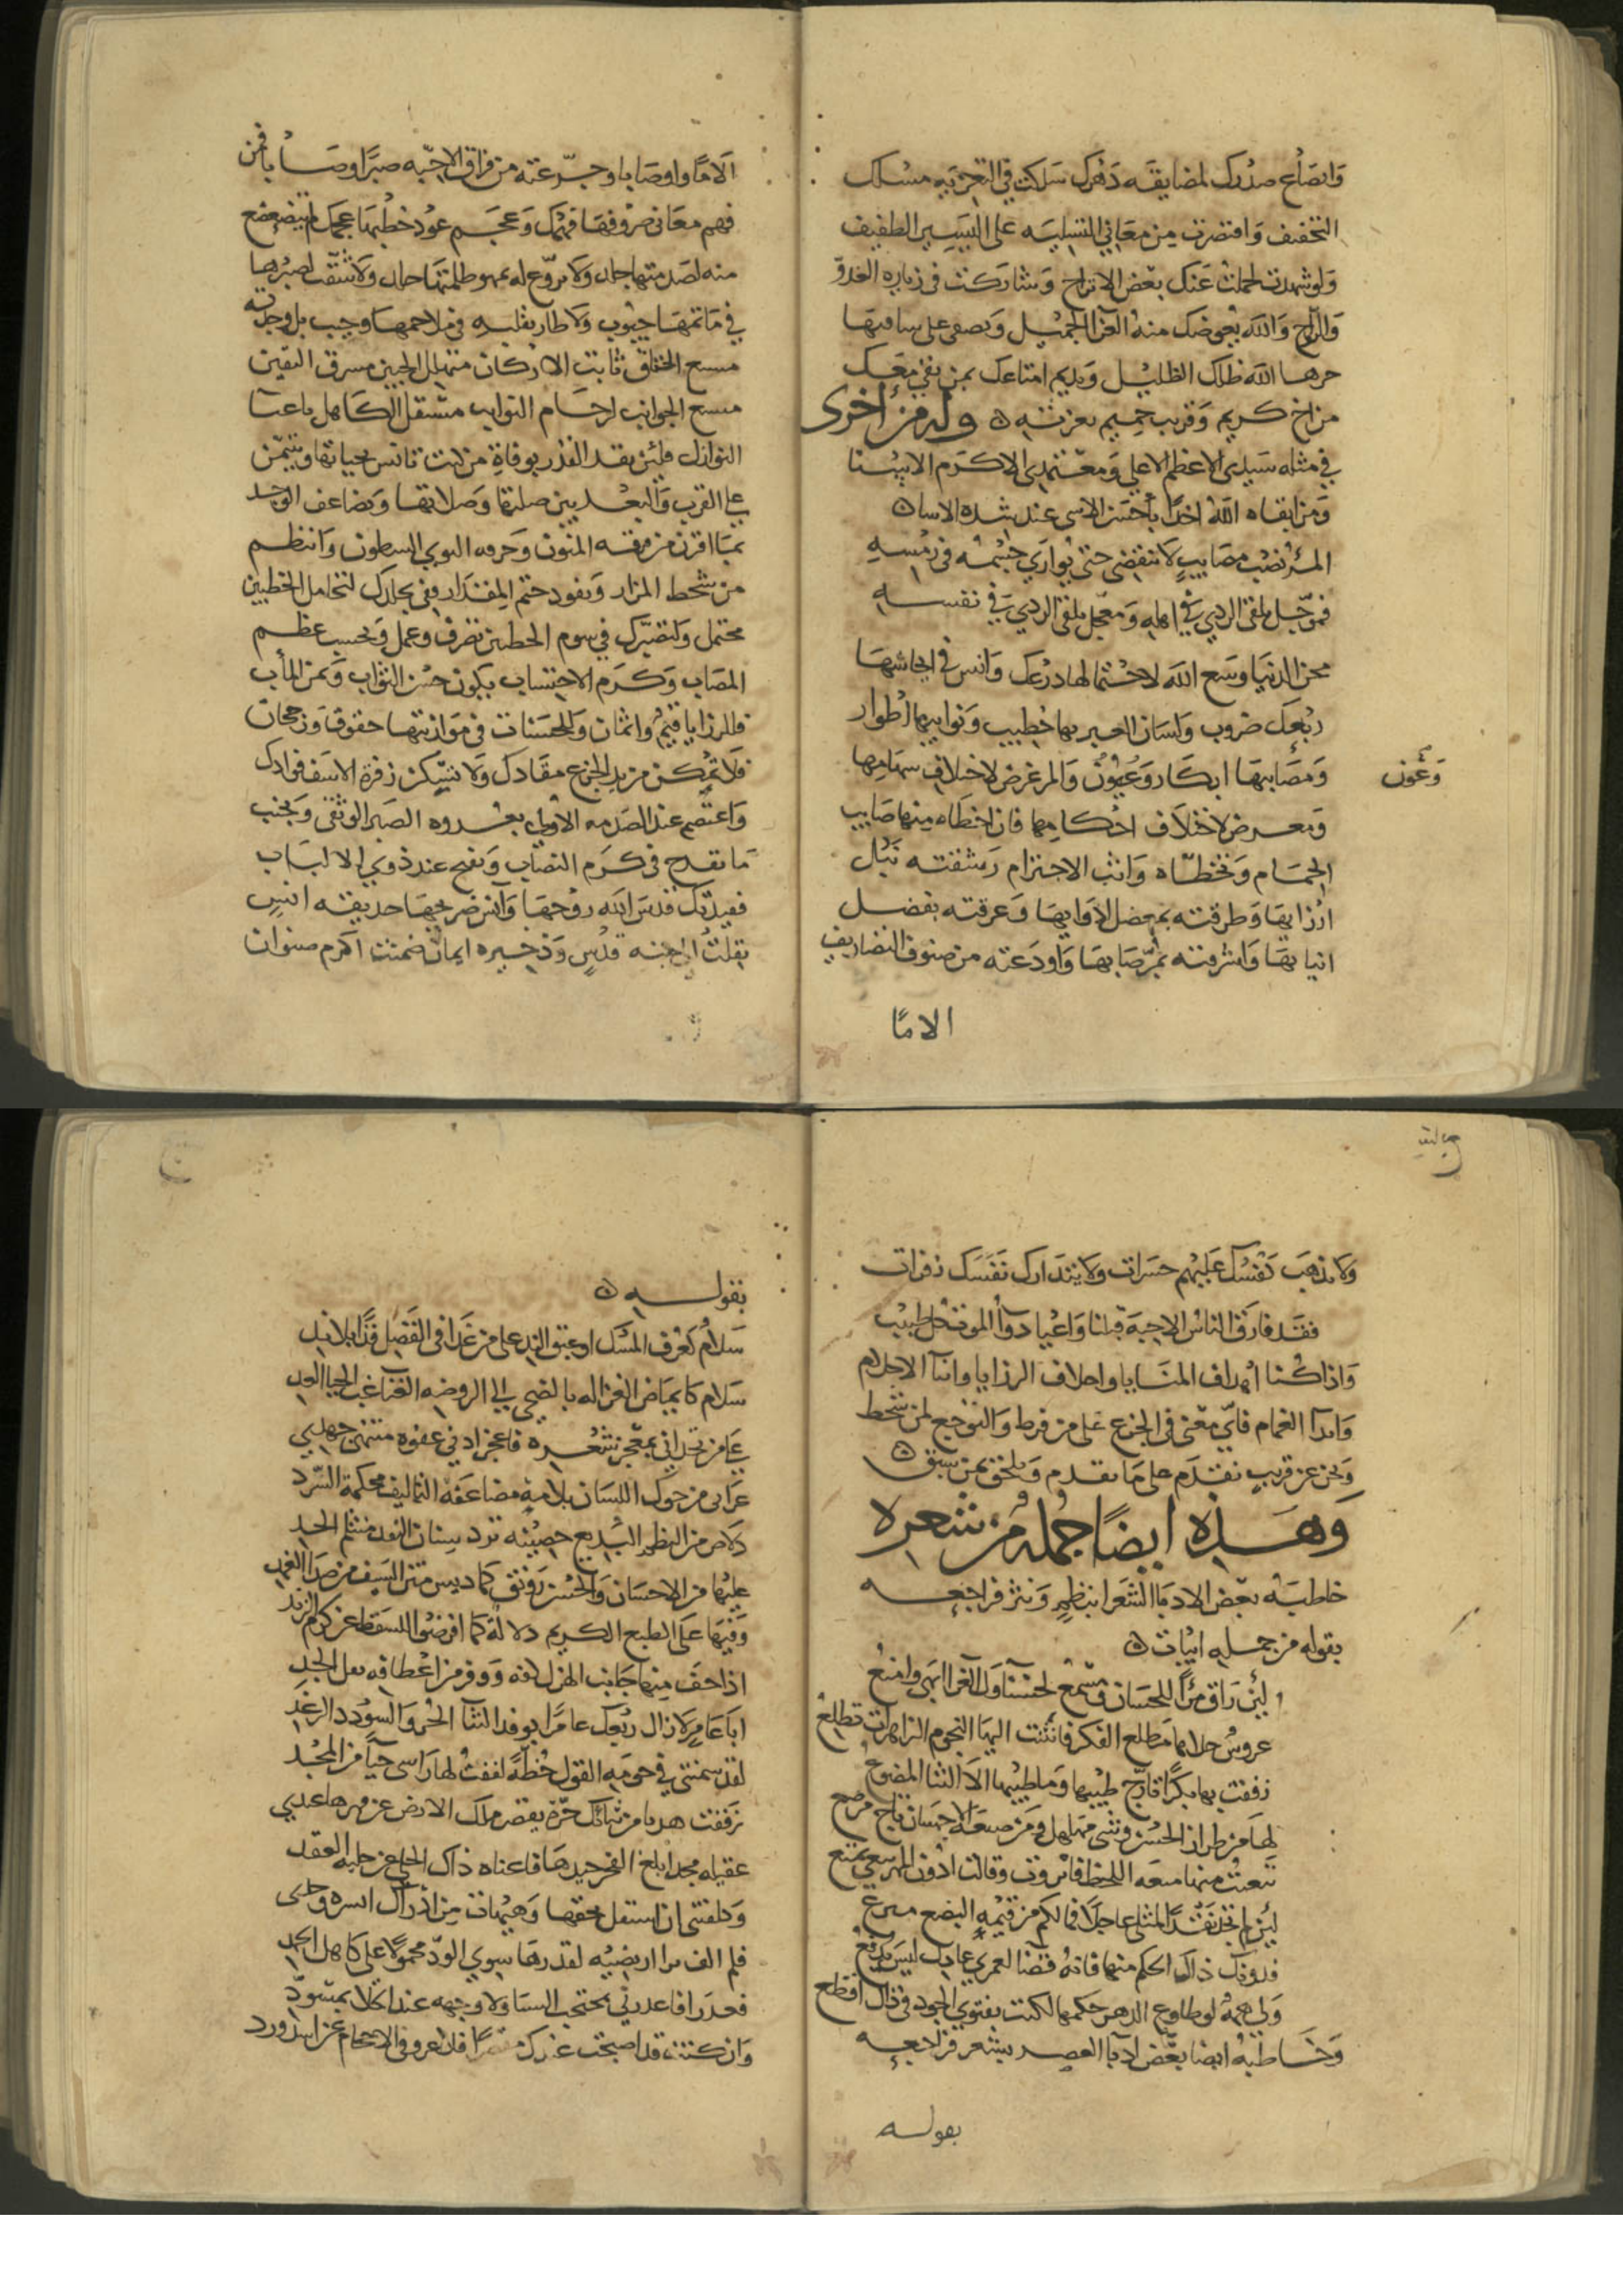 وَانصَاع صدرك لمضايقَه دَهرك سَلكت في التعزيَه مسْلك
التخفيف وَاقتصَرت مِن معَاني التسليَه على اليَسِير الطفيف
وَلو شهدت لحملت عَنك بعْض الاتراح وَشاركت في زياره الغدوّ
وَالرَّواح وَالله يعَوضك منهُ العَزا الجميْل وَيصفى على ساميهَا
حرهَا الله ظلك الظليْل وَيديم امتاعك بمن بقي معَك
من اخ كريم وَقريب حَميم بعزته ٥ وله من اخرى
في مثله سَيدي الاعظم الاعلى وَمعتمدي الاكرَم الاسْنا
وَمن ابقاه الله اخدًا بأحسَن الاسى عند شده الاسا ٥
المرْ نصْب مصَايبٍ لا تنقضى حتى يُوارَي جسْمهُ في رَمْسِهِ
فموَجّل يلقى الردي في اهلهِ وَمعجّل يلقى الردي في نفسهِ
محن الدنيَا وسَع الله لاحتمالهَا درْعك وَانس في ايحاشهَا
ربْعك ضروب وَلسَان العبر بهَا خطيب وَنوايبهَا اطوار
وَمصَايبهَا ابكار وَعُيُوْن وَالمر غرض لاختلاف سهَامهَا
وَعُون
وَمعرض لاختلاَف احْكامِها فان اخطَاه مِنها صَايب
الحِمَام وَتخطّاه وَانْب الاجترام رَشقته نبْل
ارْزايهَا وَطرقته بمعضل لأوَايهَا وَعرقته بفضل
انيابهَا وَاشرقته بمرّ صَابهَا وَاودَعته من صنوف التصَاريف
الامًا
الاَمًا وَاوصَابا وجرّعته من فراق الاحبّه صبرًا وصَابا فمن
فهم معَاني صروفهَا فهمك وَعجَم عوْد خطْبهَا عجمك لم يتضعضع
منه لصَدمتها جال وَلا يروّع له بهَو طلعتهَا حال وَلا شقت لصبرها
في مَاتمهَا جيُوب وَلا طار بقلبه في ملاحمهَا وَجيب بل وجدته
فسيح الخناق ثابت الاركان متهلل الجبين مشرق اليقين
فسيح الجوانب لزحَام النوايب مستقل الكاهل باعبَا
النوازل فلئن نفد القدر بوفاة من كنت تانس بحياتهَا وتتيمّن
على القرب وَالبعْد بين صلتهَا وَصلاتهَا وَتضاعف الوجد
بمَا اقترن من فرقه المنون وَحرقه النوي الشطون وَانتظم
من شحط المزار وَنفود حتم المقدَار ففي تجلدك لتحامل الخطبين
محتمل وَلتصبّرك في سوم الحطين تصَرف وعمل وَبحسب عظم
المصَاب وَكرَم الاحتساب يكون حسْن الثوَاب وَيمن المأب
فللرزايا قيَم وَاثمان وَللحسَنات في مَوَازينهَا حقوق وَرجحان
فلاَ تمكن من يد الجزع مقَادَك وَلا تسْكن زفرة الاسَف فوادك
وَاعتصم عند الصَدمه الاولى بعُروه الصَبر الوثقى وَتجنب
مَا يقدح في كرَم النصَاب وَيقبح عند ذوي الالبَاب
ففقيدتك قدسَ الله روْحهَا وَآنس ضريحهَا حديقه انسٍ
نقلت الى جنه قدْسٍ وَذخيره ايمان ضمت اكرم صنوان
وَلا تذهَب نفْسك عَليهم حسَرات وَلا يتدَارك نفَسَك زفرات
فقَد فارَق الناسُ الاحبة قبْلنا وَاعْيا دوَآ الموْت كل طبيْب
وَاذا كُنا اهداف المنَايا وَاحلاف الرزايا وَابنآ الاحلام
وَاندآ الغمام فايّ معْنى في الجزع على من فرط وَالتوَجع لمن شحط
وَنحن عن قريبٍ نقدَم على مَا تقدم وَنلحق بمن سبَق ٥
وَهَذه ايضًا جُملة من شعره
خاطبَهُ بعْض الادبَا الشعَرا بنظمٍ وَنثر فراجعه
بقوله من جمله ابيات ٥
لئن رَاق مرْأ للحسَان ومسْمع لحسْنا وك الغرا ابهي وامتعُ
عروسٌ جلاها مَطلع الفكر فانثنت اليهَا النجوم الزاهرات تطلعُ
زففت بها بكرًا تأرّج طيْبها وَما طيْبها الاَّ الثنا المضوعُ
لهَا من طراز الحُسْن وشي مهلهل وَمن صَنعَة الاحسَان تاج مرصع
لئن لم تجد نقْدًا لمثلي عاجلاً فما لكم من قيمةِ البضع مسرع
فدونك ذاك الحكم منها فانهُ قضا لعمري عادل ليسَ يدفعُ
وَلي همةُ لو طاوع الدهر حكمها لكنت بفتوي الجود في ذاك اقطع
وَخاطبهُ ايضا بعْض ادبا العصر بشعر فراجعه
بقوله
بقوله ٥
سَلامٌ كعَرْف المسْك او عَبق الند على من غَدا في الفَضل فذًا بلا ندِ
سَلام كايمَاض الغزاله بالضحي الى الروضه الغنا غب الحيا العد
على من تحداني بمعْجز شعْره فاعجز ادني عفوه منتهى جهدي
غزاني من حوك اللسَان بلامةٍ مضاعَفه التاليف محكمة السّرد
دلاص من النظم البَديع حصيْنه ترد سنان النقد منثلم الحد
عليْها من الاحسَان وَالحُسْن رَونق كما ديس متن السَيف من صَدأ الغمد
وَفيْهَا على الطبع الكريم دلالة كما افتر ضوء السقط عن كرم الزند
ابَا عَامرٍ لا زال ربْعك عامرًا بوفد الثنا الحُر وَالسؤدد الرغد
لقد سمتني في حومَهِ القول خُطةً لففت لها رَاسي حيآً من المجْد
عقيله مجد ابلغ الفخر جيدهَا فاغناه ذاك الحلي عن حليه العقد
وَكلفتني ان استقل بحقها وَهيْهات من ادراك
فلم الف سوي الودّ محموْلا على كاهل الحمد